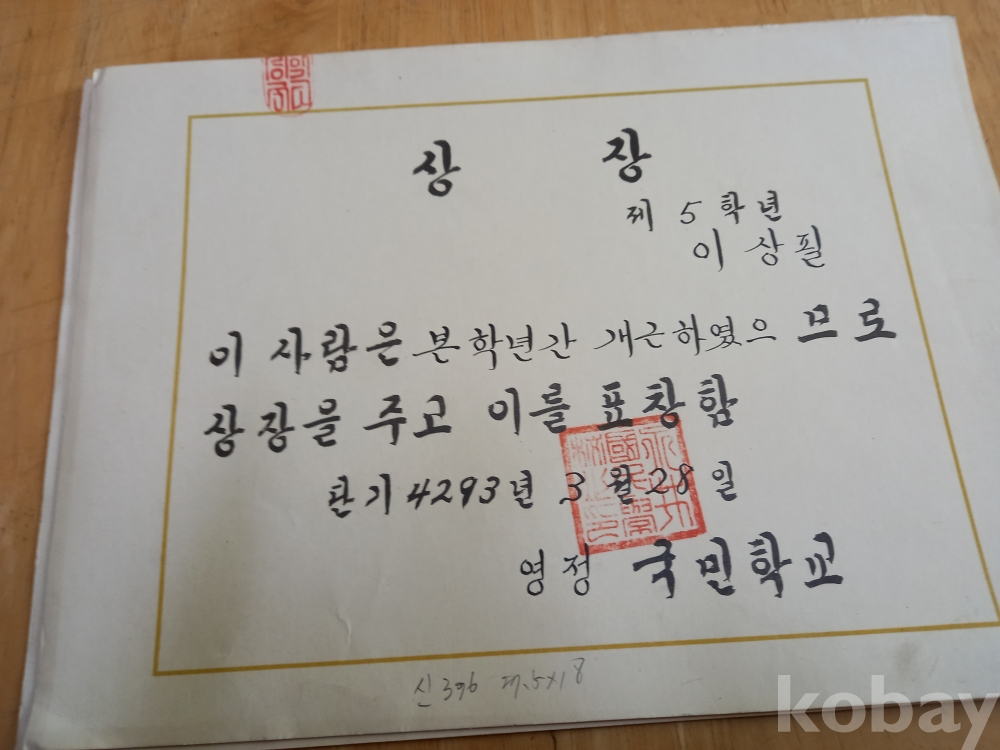 상 장
제 5 학년
이 상 필
이 사람은 본학년간 개근하였으 므로
상장을 주고 이를 표창함
단기 4293년 3월 28일
영정 국민학교
신 396
kobay